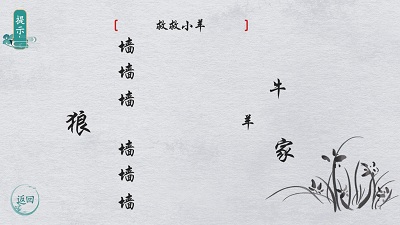 提示
[ 救救小羊 ]
墙
墙
墙
狼
墙
墙
墙
牛
羊
家
返回